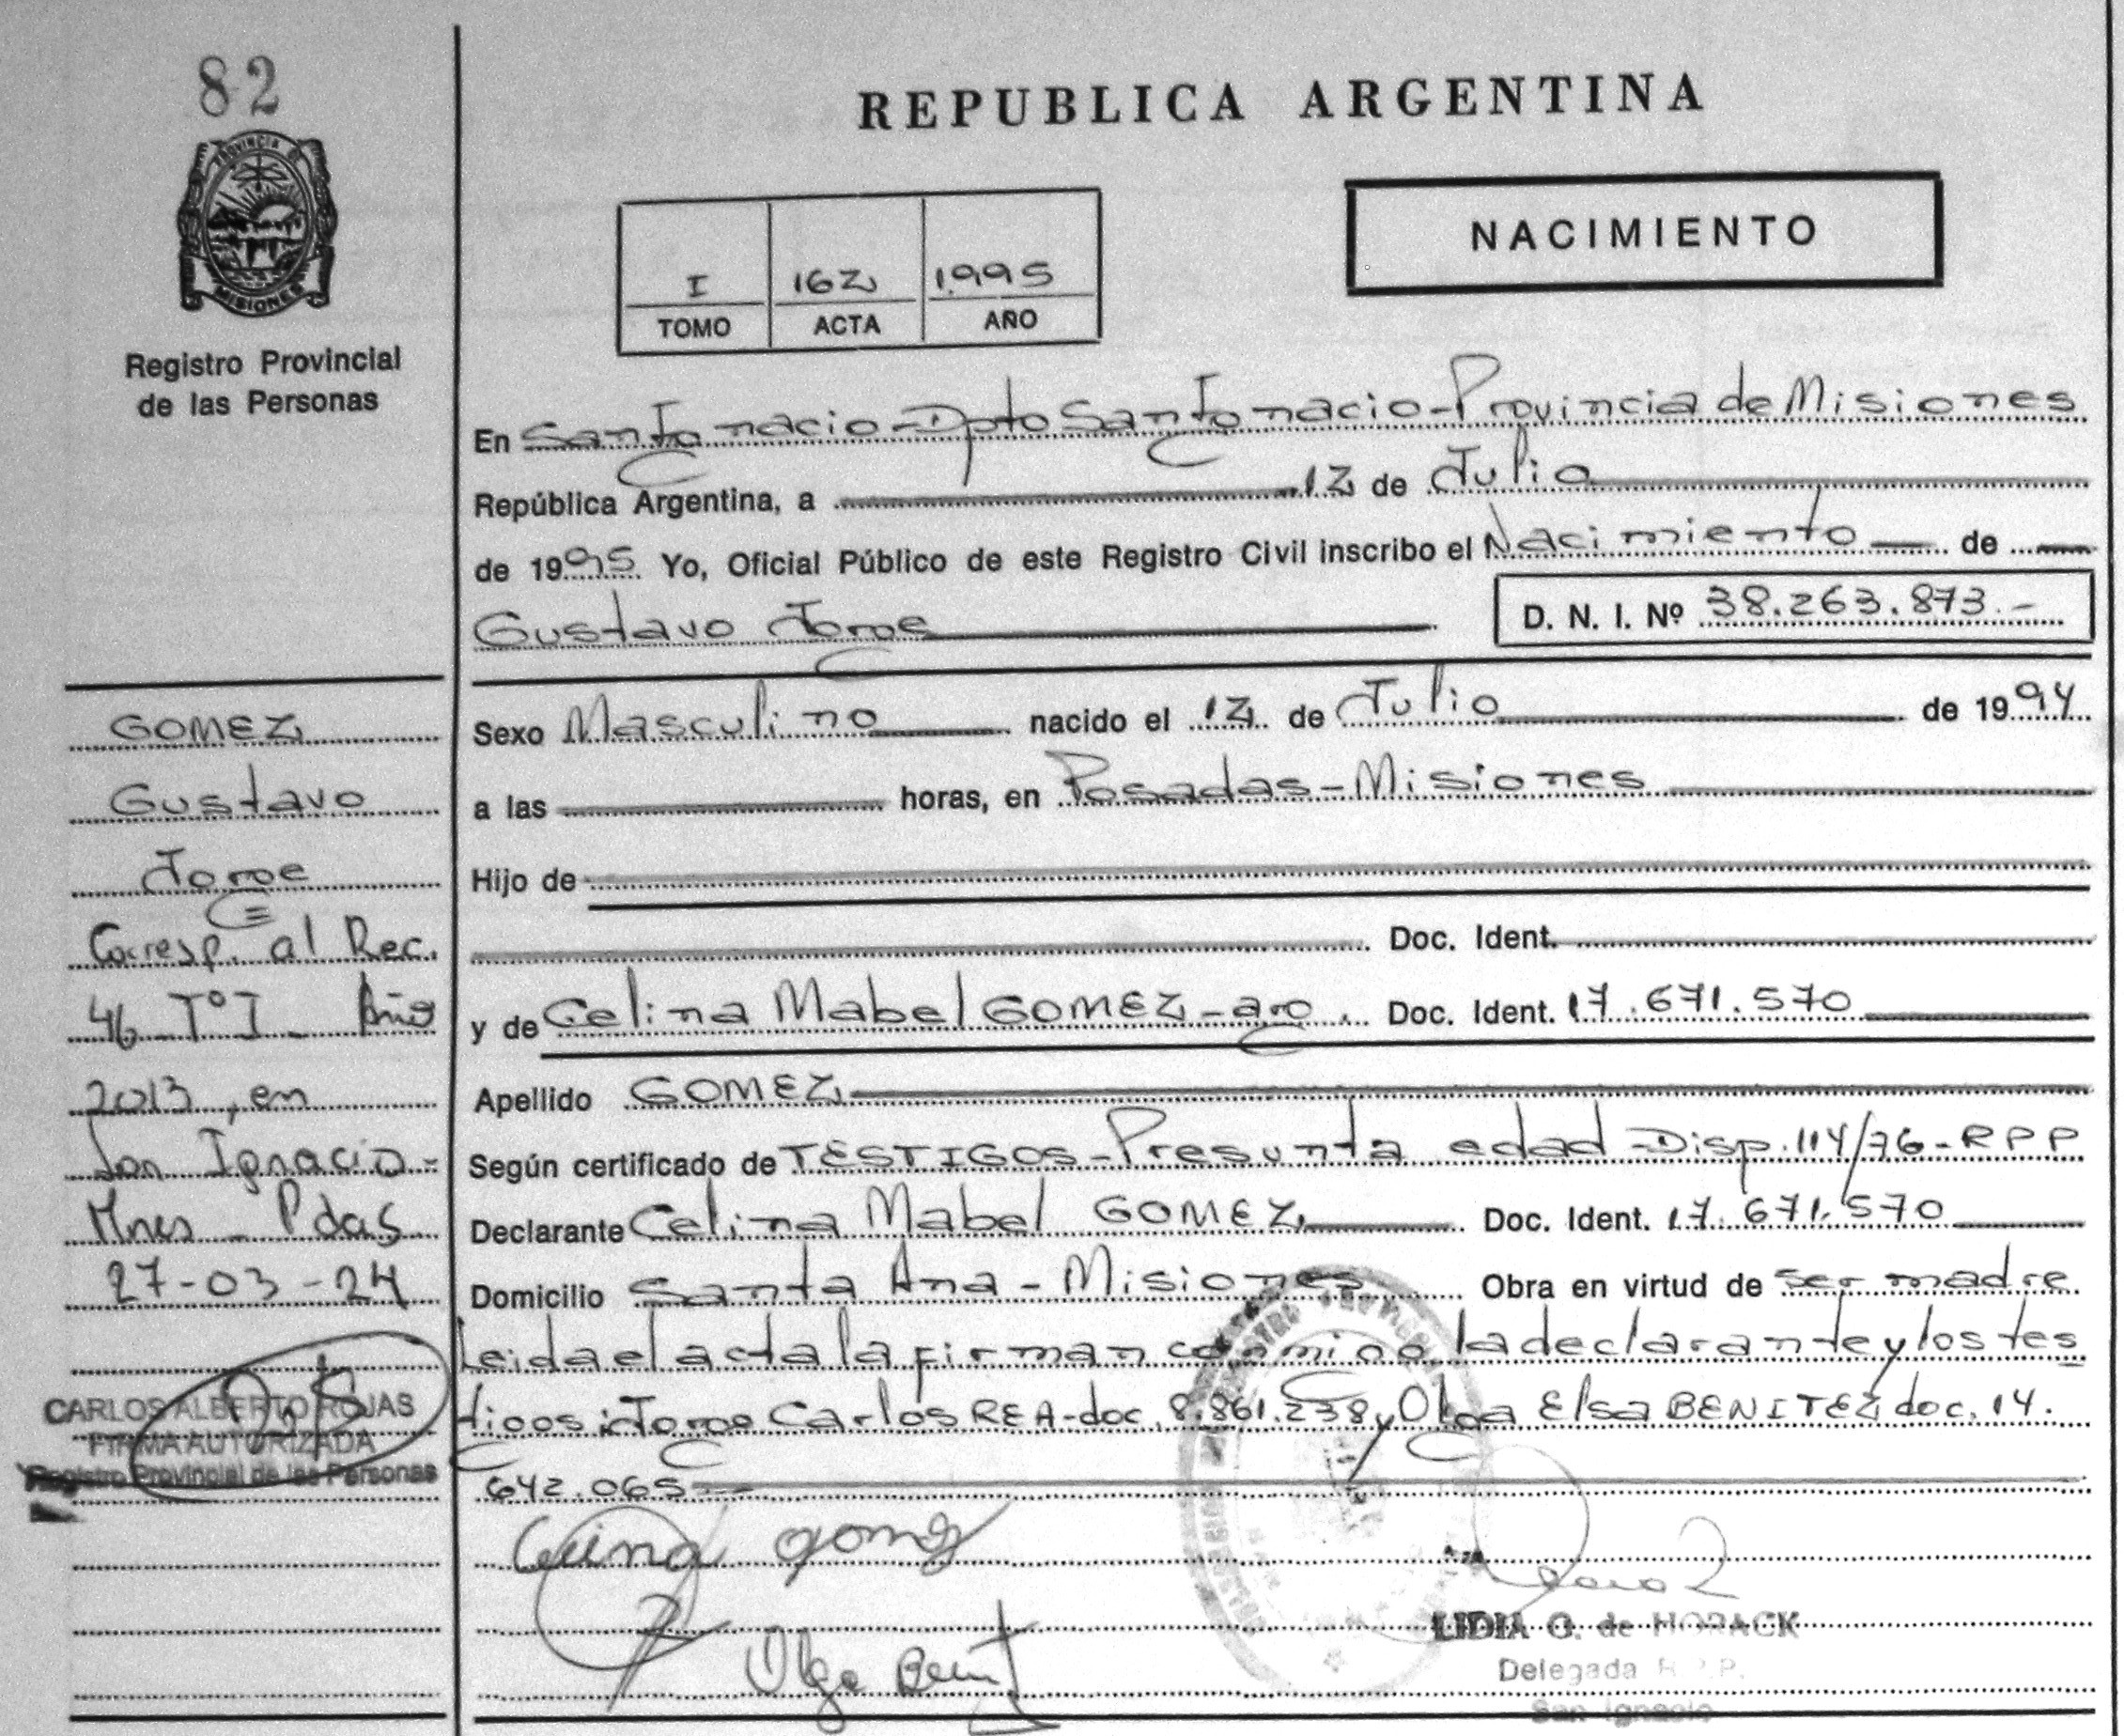 82
PROVINCIA DE
MISIONES
Registro Provincial
de las Personas
REPUBLICA ARGENTINA
NACIMIENTO
I 162 1.995
TOMO ACTA AÑO
En San Ignacio - Dpto San Ignacio - Provincia de Misiones
República Argentina, a 12 de Julio
de 1995 Yo, Oficial Público de este Registro Civil inscribo el Nacimiento de
Gustavo Jorge
D. N. I. Nº 38.263.873.-
Sexo Masculino nacido el 12 de Julio de 1994
a las horas, en Posadas - Misiones
Hijo de
Doc. Ident.
y de Celina Mabel GOMEZ - arg. Doc. Ident. 17.671.570
Apellido GOMEZ
Según certificado de TESTIGOS - Presunta edad - Disp. 114/76 - RPP
Declarante Celina Mabel GOMEZ Doc. Ident. 17.671.570
Domicilio Santa Ana - Misiones Obra en virtud de ser madre
Leida el acta la firman conmigo la declarante y los tes
tigos: Jorge Carlos REA - doc. 8.861.238 y Olga Elsa BENITEZ doc. 14.
642.065
GOMEZ
Gustavo
Jorge
Corresp. al Rec.
46 Tº I - Año
2013, en
San Ignacio -
Mnes - Pdas
27-03-24
CARLOS ALBERTO ROJAS
FIRMA AUTORIZADA
Registro Provincial de las Personas
Celina gomez
Olga Benit
LIDIA O. de HORACK
Delegada R.P.P.
San Ignacio